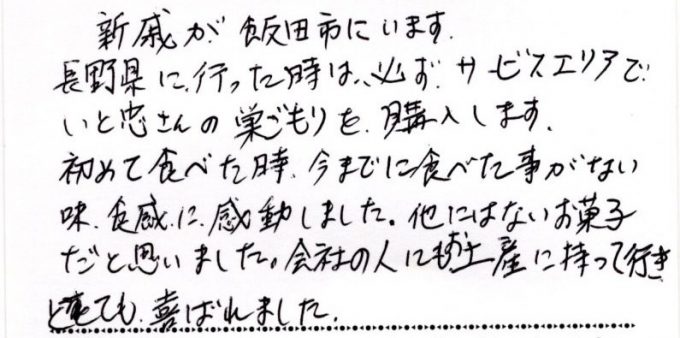 新戚が飯田市にいます.
長野県に行った時は、必ず、サービスエリアで
いと忠さんの巣ごもりを、購入します.
初めて食べた時、今までに食べた事がない
味、食感、に、感動しました。他にはないお菓子
だと思いました。会社の人にもお土産に持って行き
とても、喜ばれました.